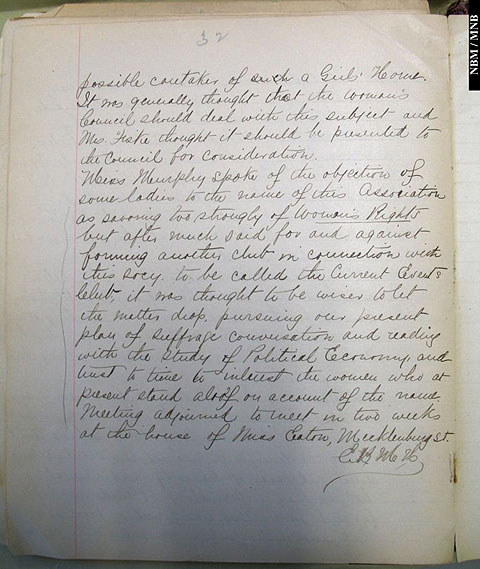 NBM / MNB
32
possible caretaker of such a Girls' Home.
It was generally thought that the woman's
Council should deal with this subject and
Mrs. Fiske thought it should be presented to
the Council for consideration.
Miss Murphy spoke of the objection of
some ladies to the name of this Association
as savoring too strongly of Woman's Rights
but after much said for and against
forming another club in connection with
this socy. to be called the Current Events
Club, it was thought to be wiser to let
the matter drop, pursuing our present
plan of suffrage conversation and reading
with the study of Political Economy, and
trust to time to interest the women who at
present stand aloof on account of the name.
Meeting adjourned to meet in two weeks
at the house of Miss Eaton, Mecklenburg St.